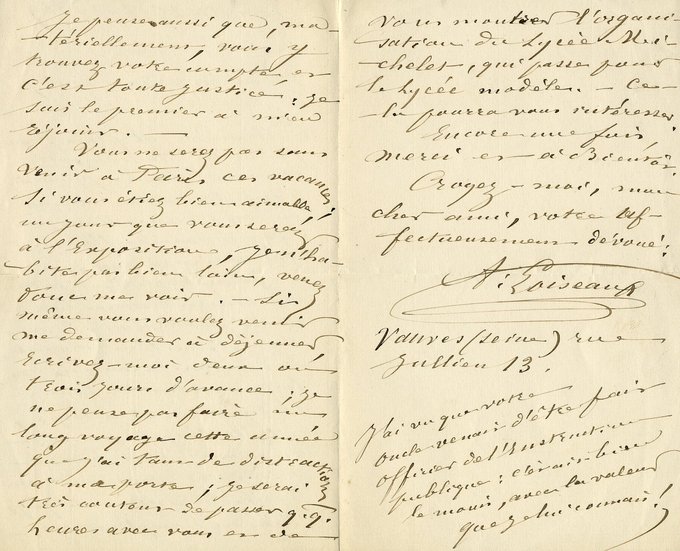 Je pense aussi que, ma-
tériellement, vous y
trouvez votre compte, et
c'est toute justice : je
suis le premier à m'en
réjouir. —
Vous ne serez pas sans
venir à Paris ces vacances !
Si vous étiez bien aimable,
un jour que vous serez
à l'Exposition, je n'ha-
bite pas bien loin, venez
donc me voir. — Si
même vous voulez venir
me demander à déjeuner,
écrivez-moi deux ou
trois jours d'avance ; je
ne pense pas faire un
long voyage cette année
que j'ai tant de distractions
à ma porte ; je serai
très content de passer q.q.
heures avec vous et de
vous montrer l'organi-
sation du Lycée Mi-
chelet, qui passe pour
le lycée modèle. — Ce-
la pourra vous intéresser.
Encore une fois
merci et à bientôt.
Croyez-moi, mon
cher ami, votre af-
fectueusement dévoué :
A. Loiseau
Vanves (Seine) rue
Jullien 13.
J'ai vu que votre
oncle venait d'être fait
officier de l'Instruction
publique : c'était bien
le moins, avec la valeur
que je lui connais !